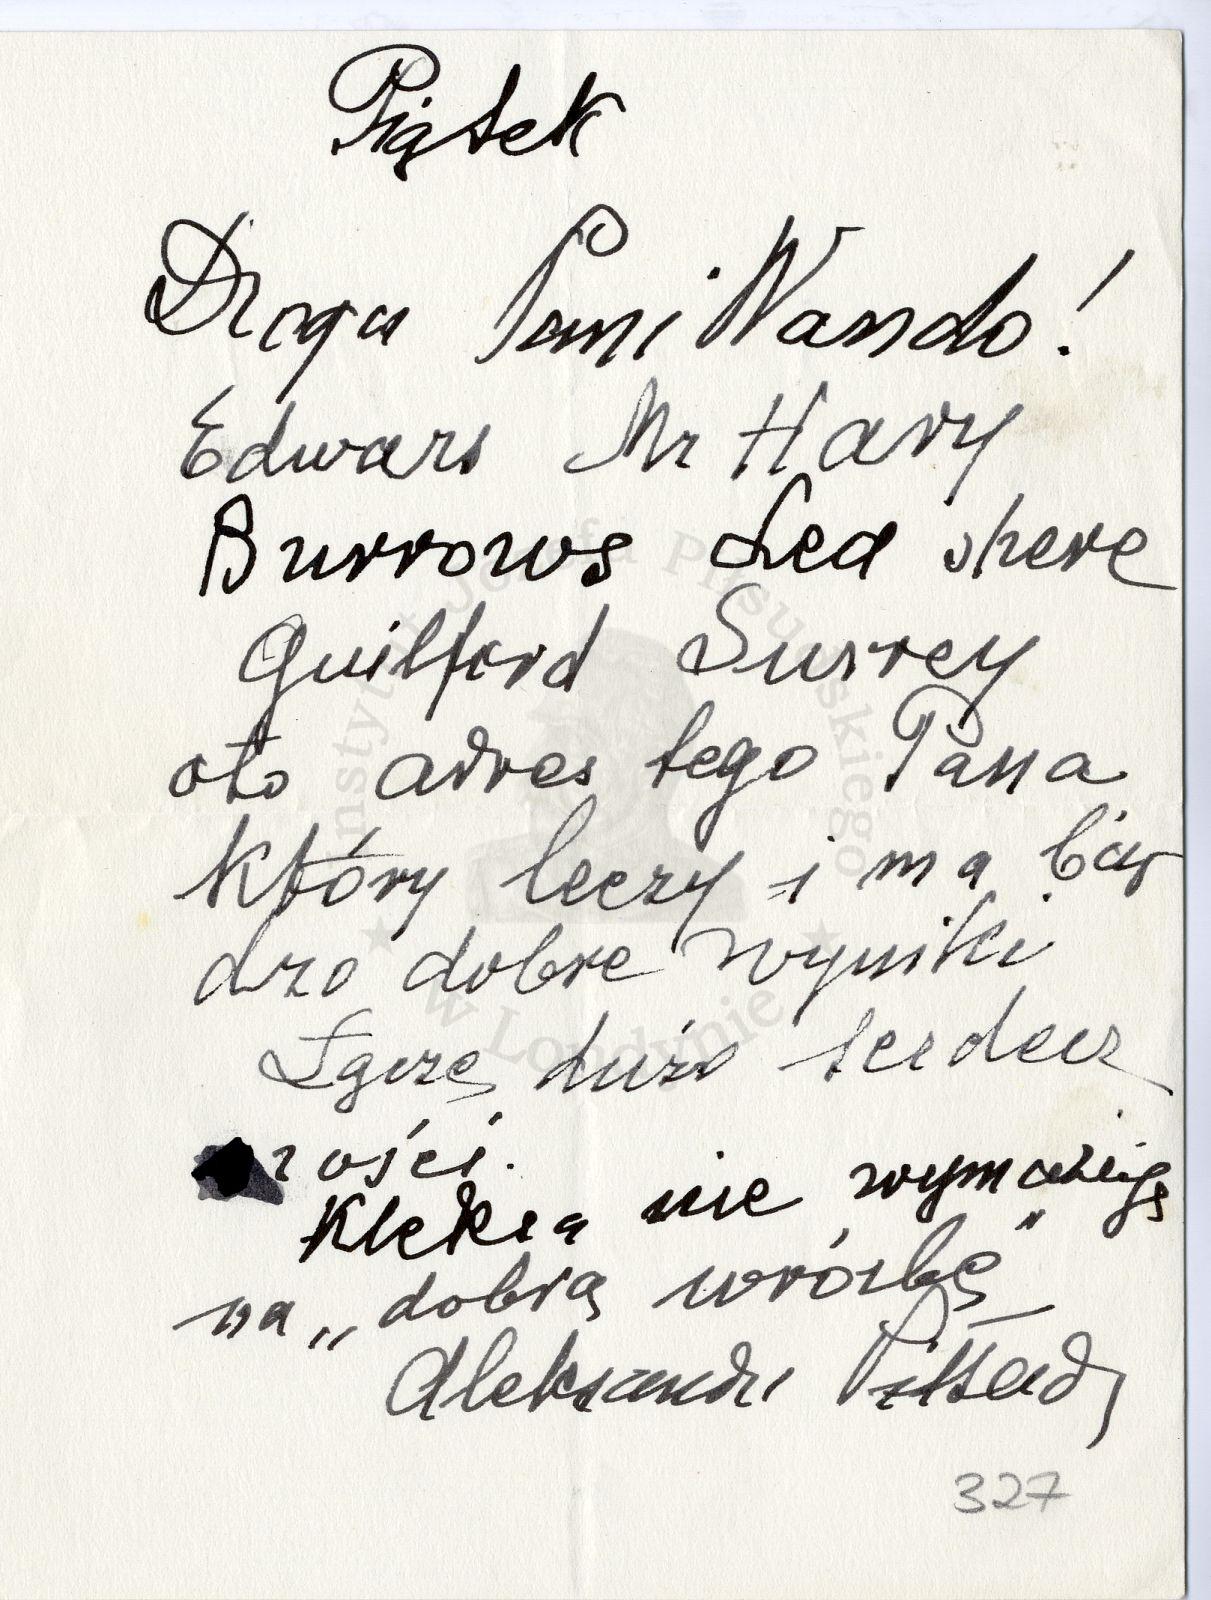 Piątek
Droga Pani Wando!
Edwars Mr Hary
Burrows Lea shere
Guilford Surrey
oto adres tego Pana
który leczy i ma bar
dzo dobre wyniki
Łączę dużo serdecz
ności.
Kleksa nie
na „dobrą wróżbę”
Aleksandra
327
Instytut Józefa Piłsudskiego
w Londynie